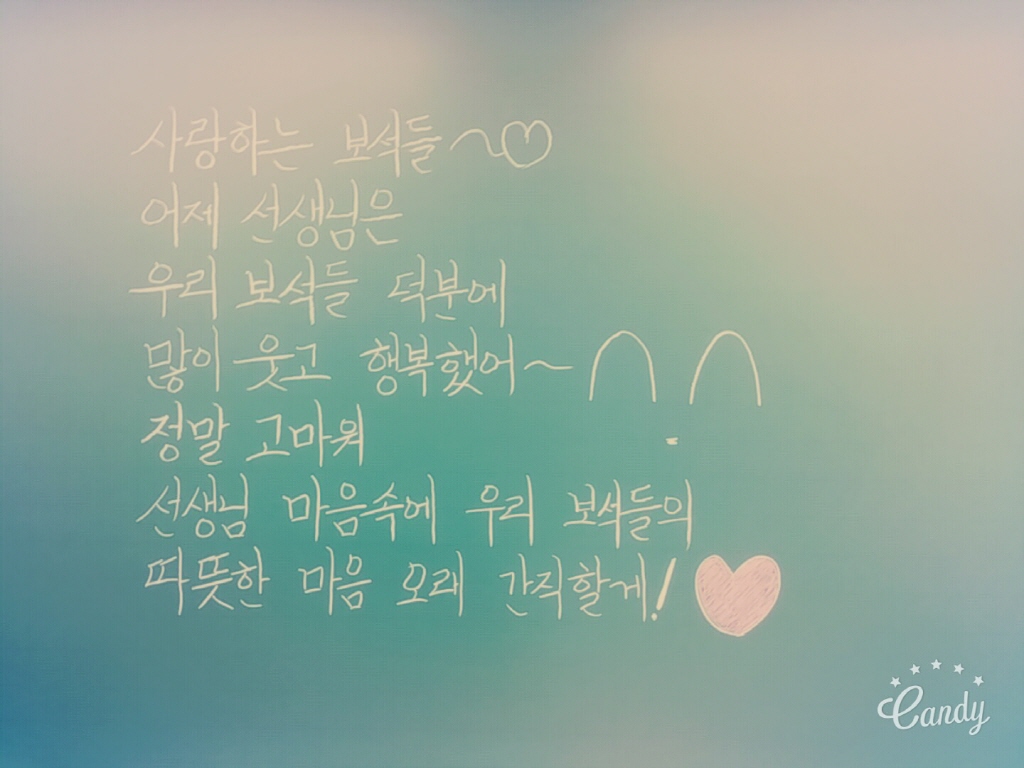 사랑하는 보석들~♡
어제 선생님은
우리 보석들 덕분에
많이 웃고 행복했어~ ∩.∩
정말 고마워
선생님 마음속에 우리 보석들의
따뜻한 마음 오래 간직할게! ♥
Candy